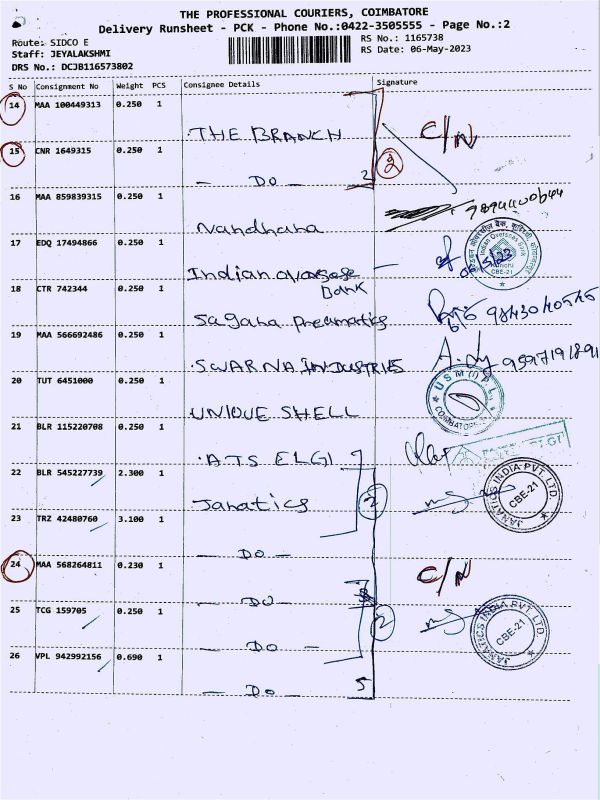 THE PROFESSIONAL COURIERS, COIMBATORE
Delivery Runsheet - PCK - Phone No.:0422-3505555 - Page No.:2
Route: SIDCO E
RS No.: 1165738
Staff: JEYALAKSHMI
RS Date: 06-May-2023
DRS No.: DCJB116573802
S No Consignment No Weight PCS Consignee Details Signature
14 MAA 100449313 0.250 1
THE BRANCH C/N
15 CNR 1649315 0.250 1
— DO — 2 2
16 MAA 859839315 0.250 1
Nandhana 9894400644
17 EDQ 17494866 0.250 1
Indian overseas Bank 06/5/23
Indian Overseas Bank
CBE-21
18 CTR 742344 0.250 1
Sagana pneumatics 9843040545
19 MAA 566692486 0.250 1
SWARNA INDUSTRIES 9597191891
20 TUT 6451000 0.250 1
UNIQUE SHELL
U S M (I) P. L.
COIMBATORE
21 BLR 115220708 0.250 1
ATS ELGI
ELGI
22 BLR 545227739 2.300 1
Janatics 2
JANATICS INDIA PVT. LTD.
CBE-21
23 TRZ 42480760 3.100 1
— DO —
24 MAA 568264811 0.230 1
— DO — C/N
25 TCG 159705 0.250 1
— DO — 2
JANATICS INDIA PVT. LTD.
CBE-21
26 VPL 942992156 0.690 1
— DO — 5